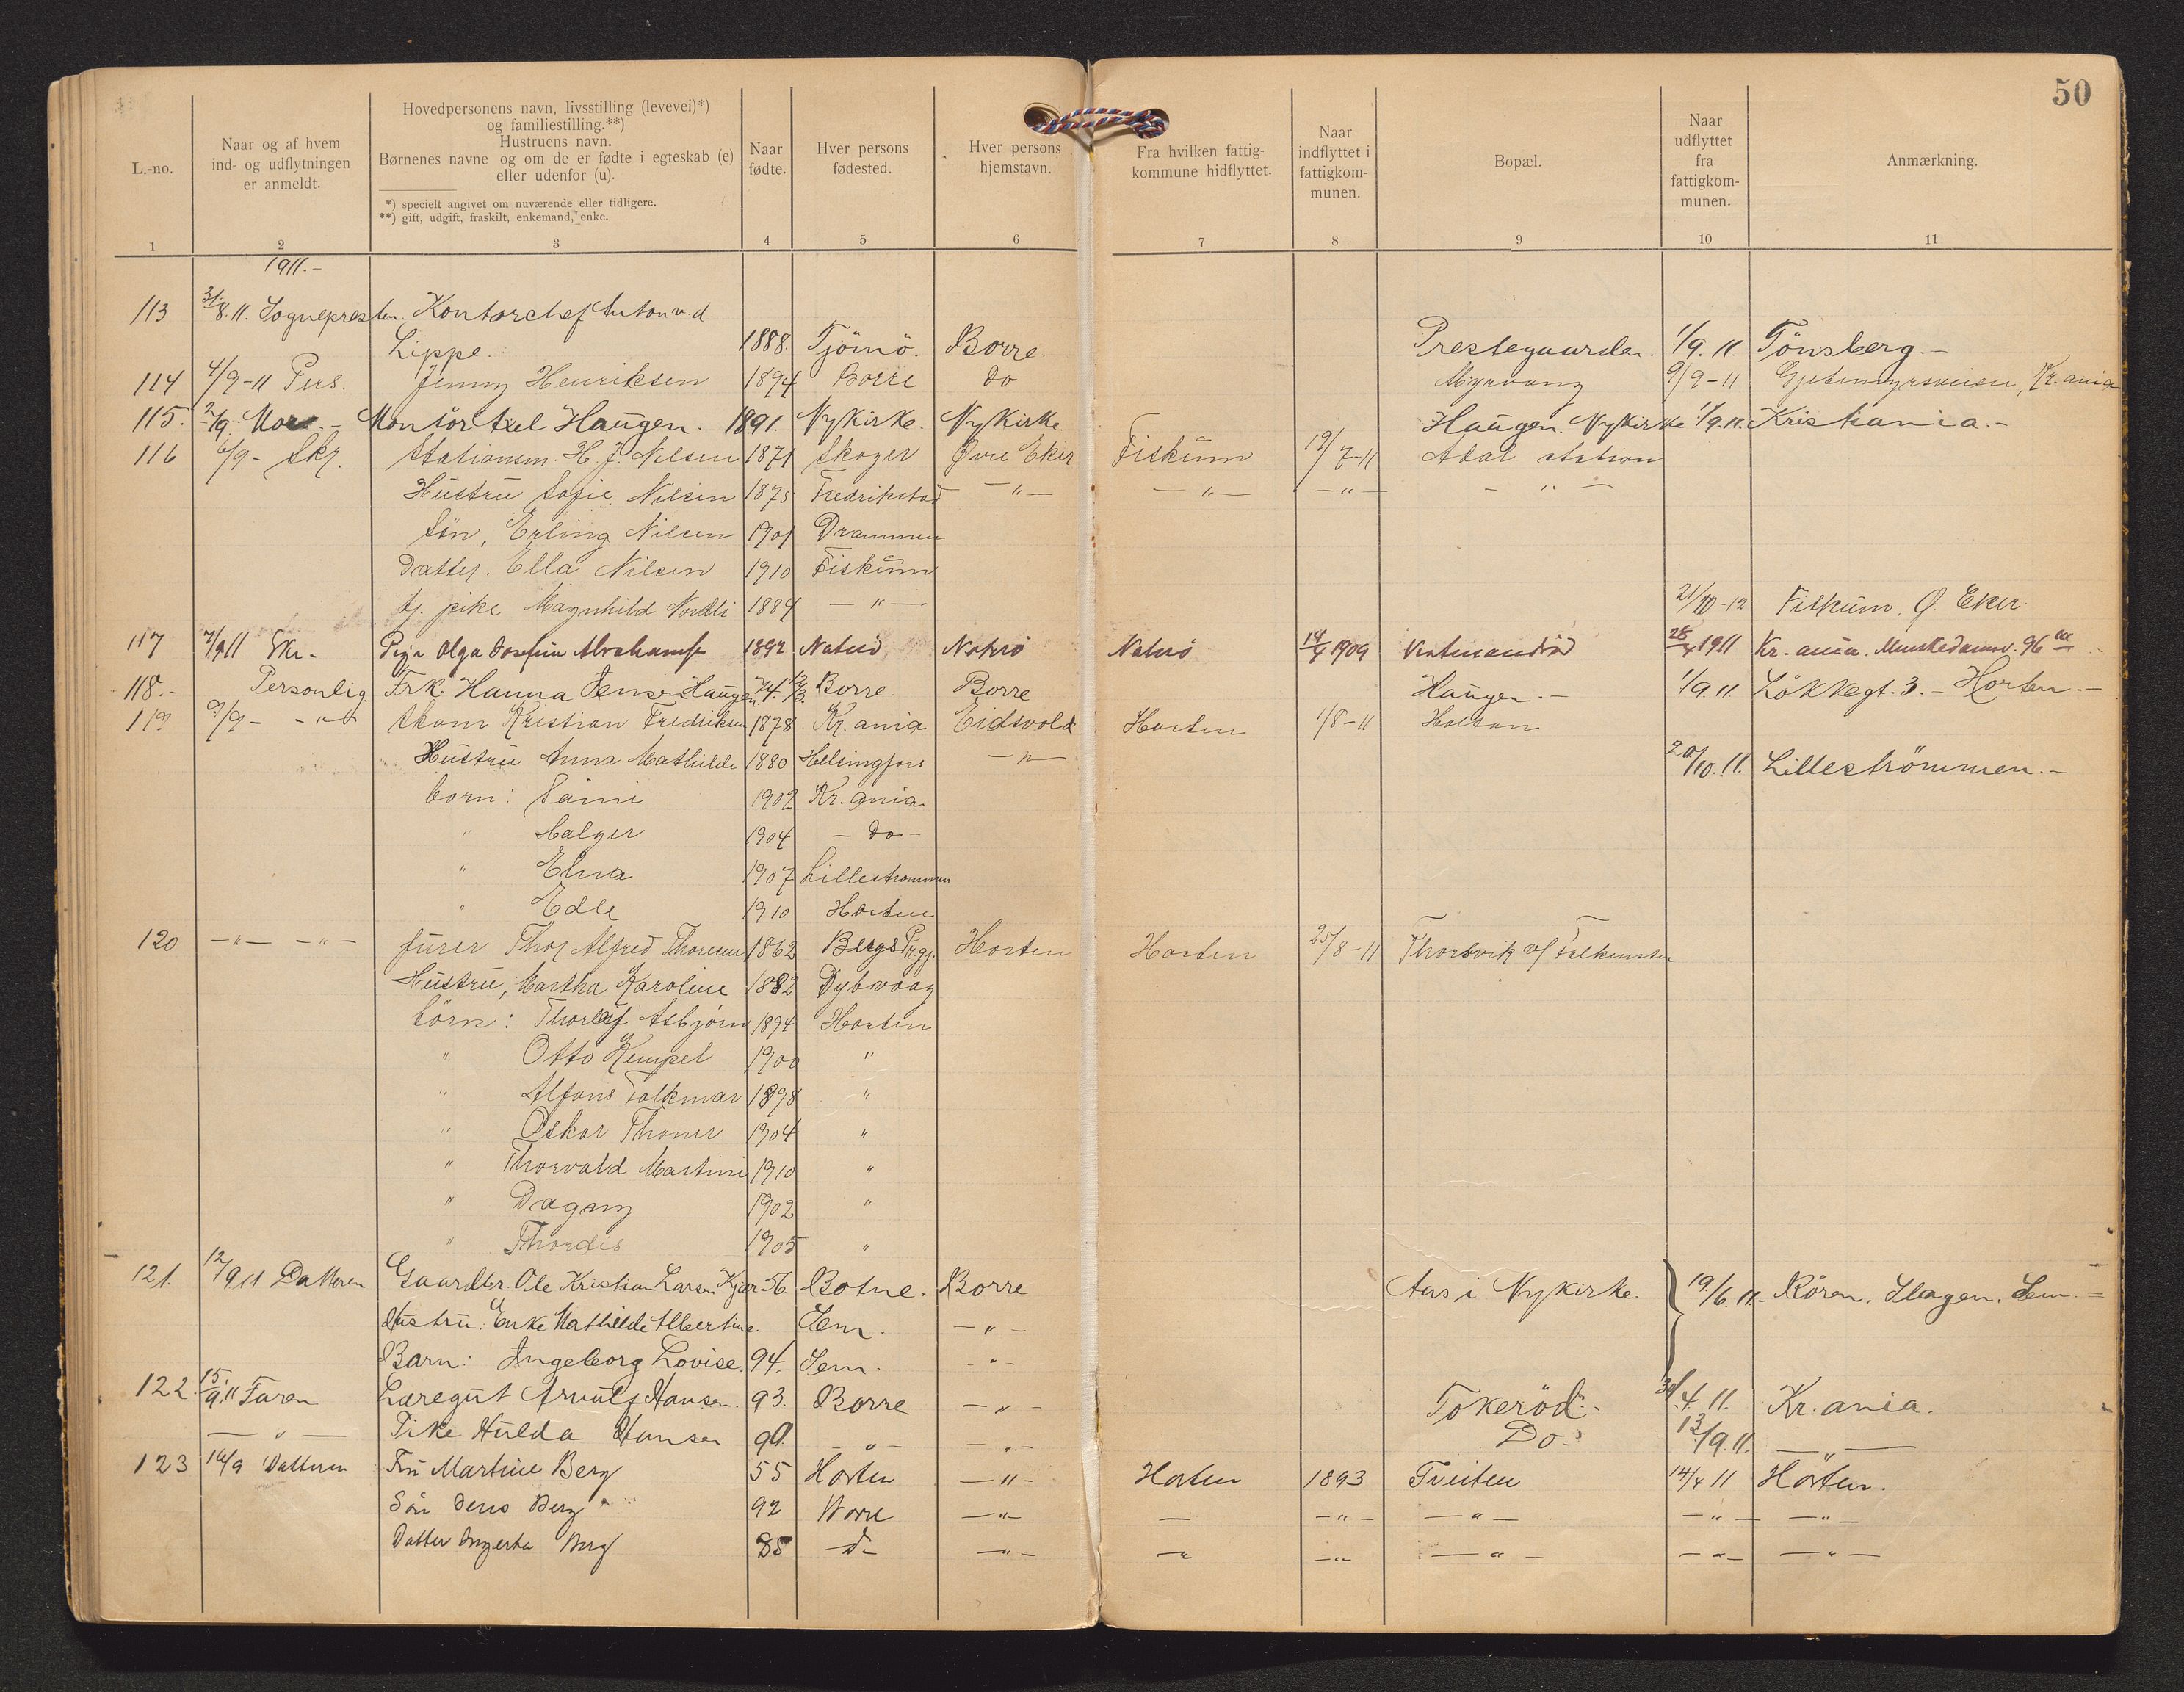 50
L.-no. Naar og af hvem ind- og udflytningen er anmeldt. Hovedpersonens navn, livsstilling (levevei)*) og familiestilling.**) Hustruens navn. Børnenes navne og om de er fødte i egteskab (e) eller udenfor (u). Naar fødte. Hver persons fødested. Hver persons hjemstavn. Fra hvilken fattigkommune hidflyttet. Naar indflyttet i fattigkommunen. Bopæl. Naar udflyttet fra fattigkommunen. Anmærkning.
*) specielt angivet om nuværende eller tidligere.
**) gift, udgift, fraskilt, enkemand, enke.
1 2 3 4 5 6 7 8 9 10 11
1911.-
113 31/8.11. Sognepresten. Kontorchef Anton v. d
Lippe. 1888. Tjömö. Borre. Prestegaarden. 1/9.11. Tönsberg.-
114 4/9-11 Pers. Jenny Henriksen 1894 Borre Do Myrvang 9/9-11 Gjetemyrsveien, Kr.ania
115. 2/9. Mor.- Montör Axel Haugen. 1891. Nykirke. Nykirke. Haugen. Nykirke 1/9.11. Kristiania.-
116 6/9- Skr. Stationsm. H. J. Nilsen 1871 Skoger Øvre Eker Fiskum 19/7-11 Adal station
Hustru Sofie Nilsen 1875 Fredrikstad -"- -"- -"- -"-
Sön, Erling Nilsen 1901 Drammen
Datter. Ella Nilsen 1910 Fiskum
tj. pike Magnhild Nordli 1889 -"- 21/10-12 Fiskum, Ø. Eker.
117 7/9 11 Skr. Pige Olga Josefine Abrahamsen 1892 Nøterø Nøterø Nøterø 14/4 1909 28/4 1911 Kr.ania. Munkedamsv. 96
118.- Personlig. Frk. Hanna Jensen Haugen. 74. Borre Borre Haugen.- 1/9.11. Lökkegt. 3.- Horten.-
119 9/9- -"- Skom Kristian Fredriksen 1878 Kr.ania Eidsvold Horten 1/8-11 Holtan
Hustru Anna Mathilde 1880 Helsingfors -"- 20/10.11. Lilleströmmen.-
born: Saimi 1902 Kr.ania
" Halger 1904 - Do -
" Elna 1907 Lillestrommen
" Edle 1910 Horten
120 -"- -"- furer Thor Alfred Thoresen 1862 Bergs Prgj. Horten Horten 25/8-11 Thorsvik v/ Falkensten
Hustru, Martha Karoline 1882 Dybvaag
börn: Thorleif Asbjörn 1894 Horten
" Otto Kempel 1900 "
" Alfons Folkmar 1898 "
" Oskar Thoner 1904 "
" Thorvald Martini 1910 "
" Dagny 1902 "
" Thordis 1905 "
121. 12/9 11 Datteren Gaardbr. Ole Kristian Larsen Kjær 56 Botne. Borre Aas i Nykirke. 19/6.11.- Rören. Slagen. Sem.=
Hustru: Enke Mathilde Albertine. Sem. -"-
Barn: Ingeborg Lovise. 94. Sem. -"-
122. 15/9.11 Faren Læregut Arnulf Hansen. 93. Borre -"- Tokeröd.- 30/4.11. Kr.ania.
-"- Pike Hulda Hansen 90. -"- -"- Do.- 13/9.11. -"-
123 14/9 Datteren Fru Martine Berg 55 Horten -"- Horten 1893 Tveiten 14/4 11 Horten.
Sön Jens Berg 92 Borre -"- - -"- -"- -"- -"-
Datter Ingerta Berg 85 - d- -"- -"- -"- -"- -"- -"-